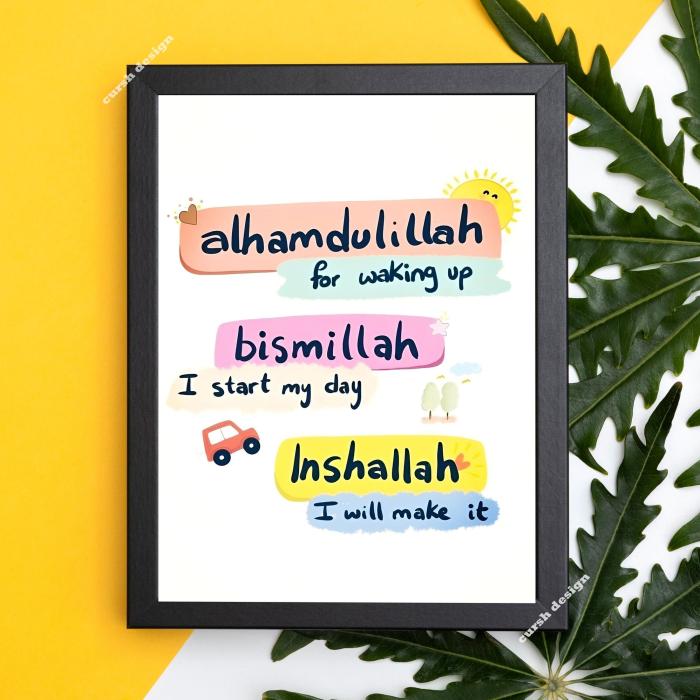 cursh design
alhamdulillah
for waking up
bismillah
I start my day
Inshallah
I will make it
cursh design